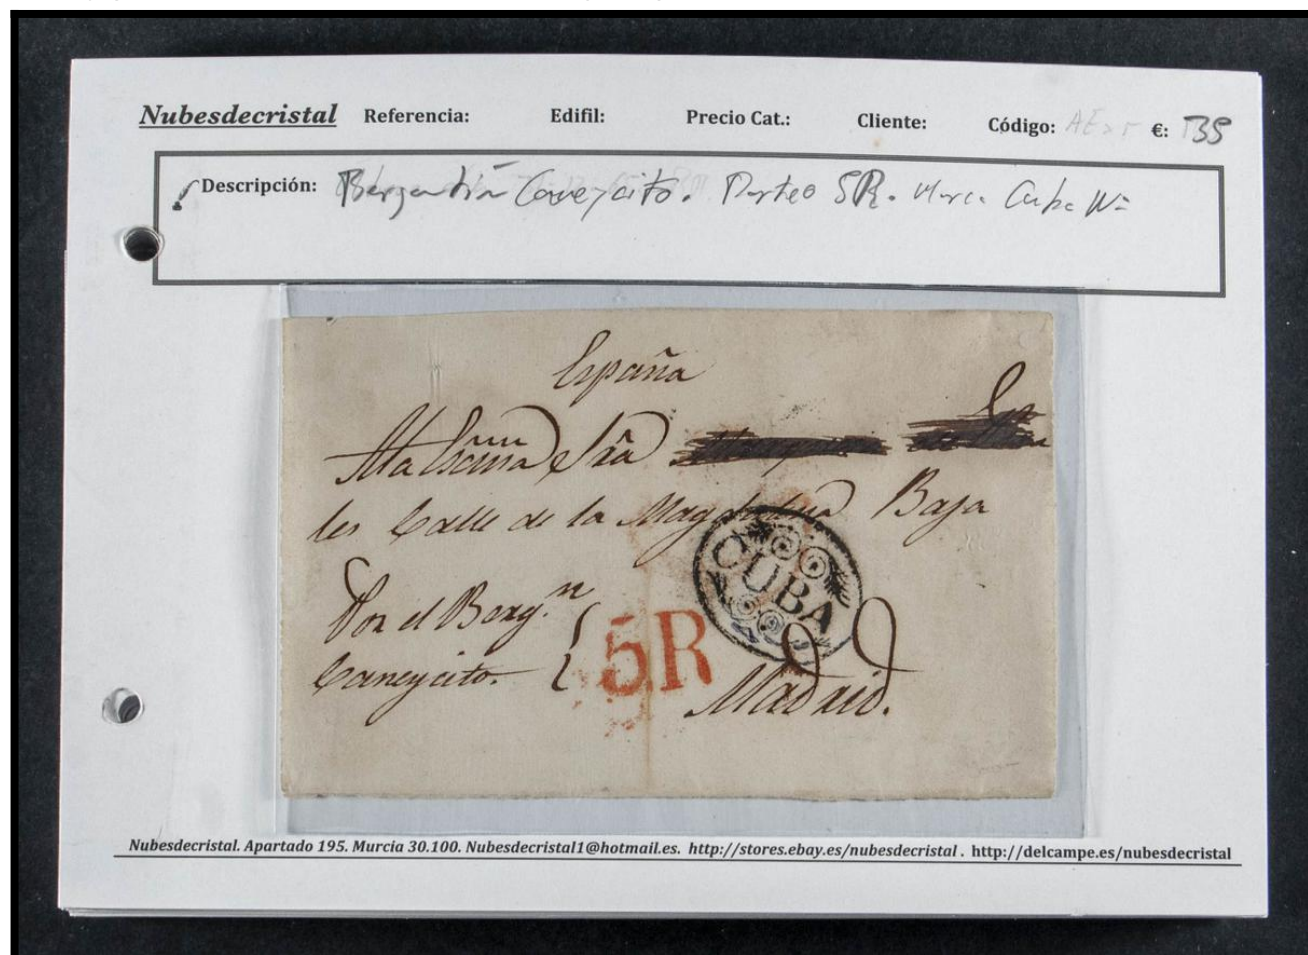 Nubesdecristal Referencia: Edifil: Precio Cat.: Cliente: Código: €: 135
Descripción: Bergantín Caneycito. Porteo 5R. Marca Cuba Nº
España
A la Excma Sra
les Calle de la Magdalena Baja
CUBA
Por el Bergn
Caneycito. 5R Madrid.
Nubesdecristal. Apartado 195. Murcia 30.100. Nubesdecristal1@hotmail.es. http://stores.ebay.es/nubesdecristal . http://delcampe.es/nubesdecristal